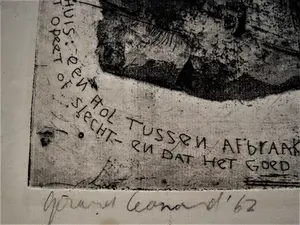 HUIS: een HOL TUSSEN AFBRAAK
T OPEET OF SLECHT- EN DAT HET GOED
Gérard Leonard '62